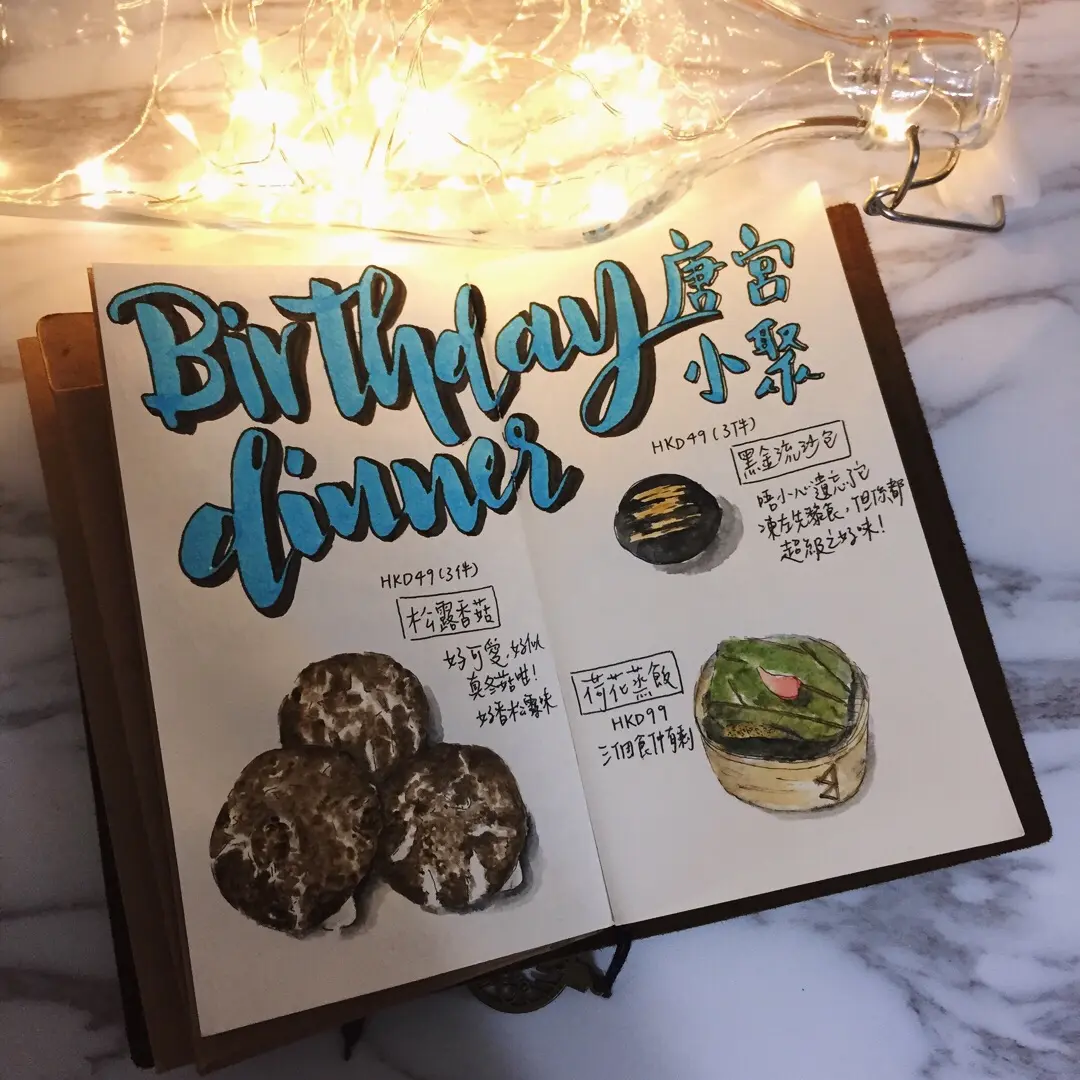 Birthday
dinner
唐宮
小聚
HKD49(3件)
松露香菇
好可愛,好似
真冬菇咁!
好香松露味
HKD49(3件)
黑金流沙包
唔小心遺忘佢
凍左先黎食,但依都
超級之好味!
荷花蒸飯
HKD99
三個食仲有剩